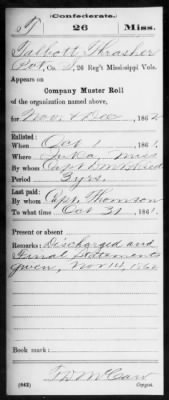 (Confederate.)
T 26 Miss.
Talbott Thrasher
Pvt, Co. , 26 Reg't Mississippi Vols.
Appears on
Company Muster Roll
of the organization named above,
for Nov & Dec, 1862.
Enlisted:
When Oct 1, 1861.
Where Iuka, Miss
By whom Capt
Period 3 yrs.
Last paid:
By whom Capt. Thomson
To what time Oct 31, 1861.
Present or absent
Remarks: Discharged and
Final Statements
given, Nov 14, 186
Book mark:
(642) T D McCaw
Copyist.